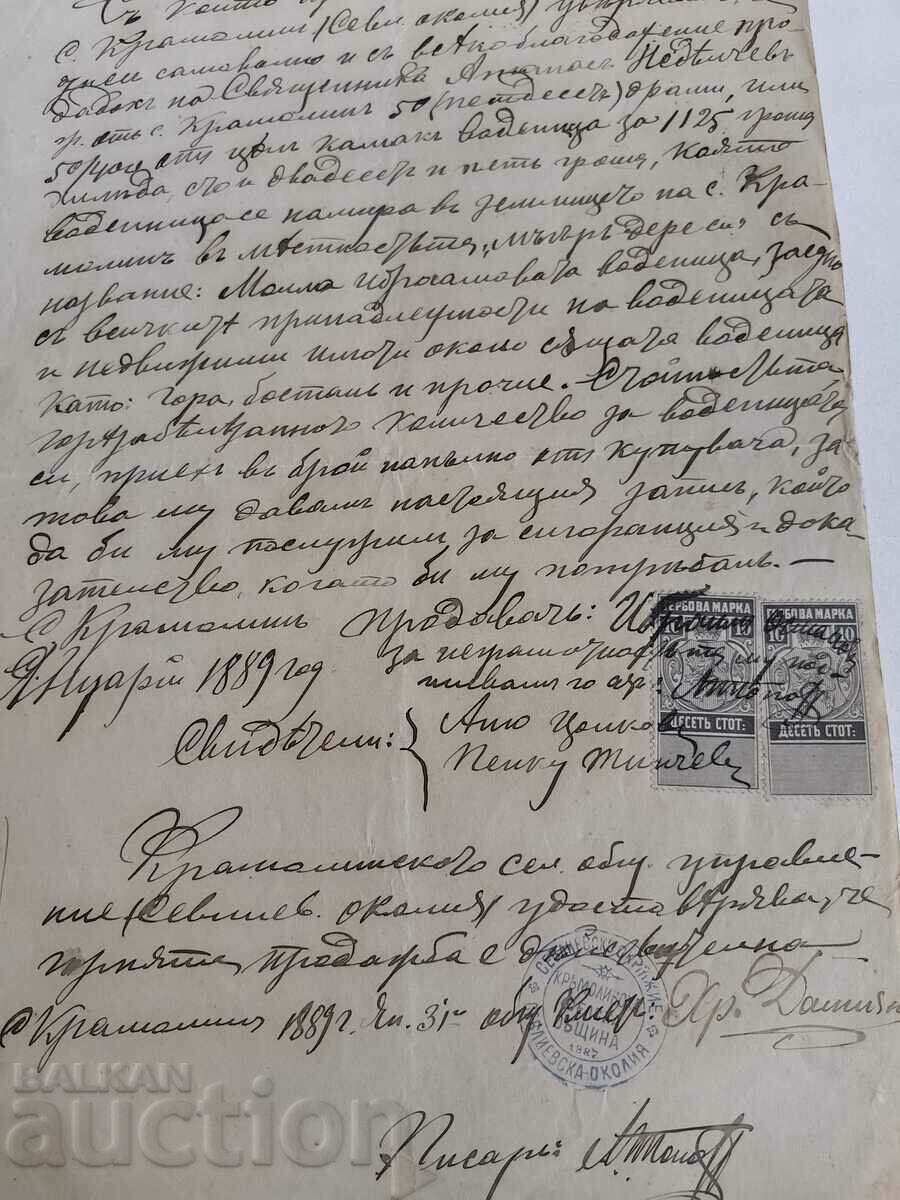 с. Крамолин (Севл. околия)
дадохъ на Священника Атанасъ Недѣлчевъ
отъ с. Крамолинъ 50 (петдесеть) драми, или
50/400 отъ цѣлъ камакъ воденица за 1125 гроша
хиляда, сто и двадесеть и петь гроша, която
воденница се намира въ землището на с. Кра-
молинъ въ мѣстностьта „ дереси“ съ
название: Молла Ибрямовата воденица, заедно
съ всичкитѣ принадлежности на воденицата
и недвижими имоти около сѫщата воденица
като: гора, бостанъ и прочие. – Стойностьта
количество за воденицата
си, приехъ въ брой напълно отъ купувача, за-
това му давамъ настоящия записъ, който
да би му послужилъ за и дока-
зателство, когато би му потрѣбалъ. –
с. Крамолинъ продавачъ:
Януарий 1889 год. за неграмотностьта му под-
писвамъ го аз:
Свидѣтели: Аню Цонковъ
Пенку Тинчевъ
ГЕРБОВА МАРКА
10
ДЕСЕТЬ СТОТ:
ГЕРБОВА МАРКА
10 10
ДЕСЕТЬ СТОТ:
Крамолинското сел. общ. управле-
ние (Севлиев. околия) удостовѣрява, че
горнята продажба е действителна
с. Крамолинъ 1889 г. Ян. 31й общ. Кметъ: Хр.
КРЪМОЛИНСКА
ОБЩИНА
1887
СЕВЛИЕВСКА-ОКОЛИЯ
Писарь:
BALKAN
auction